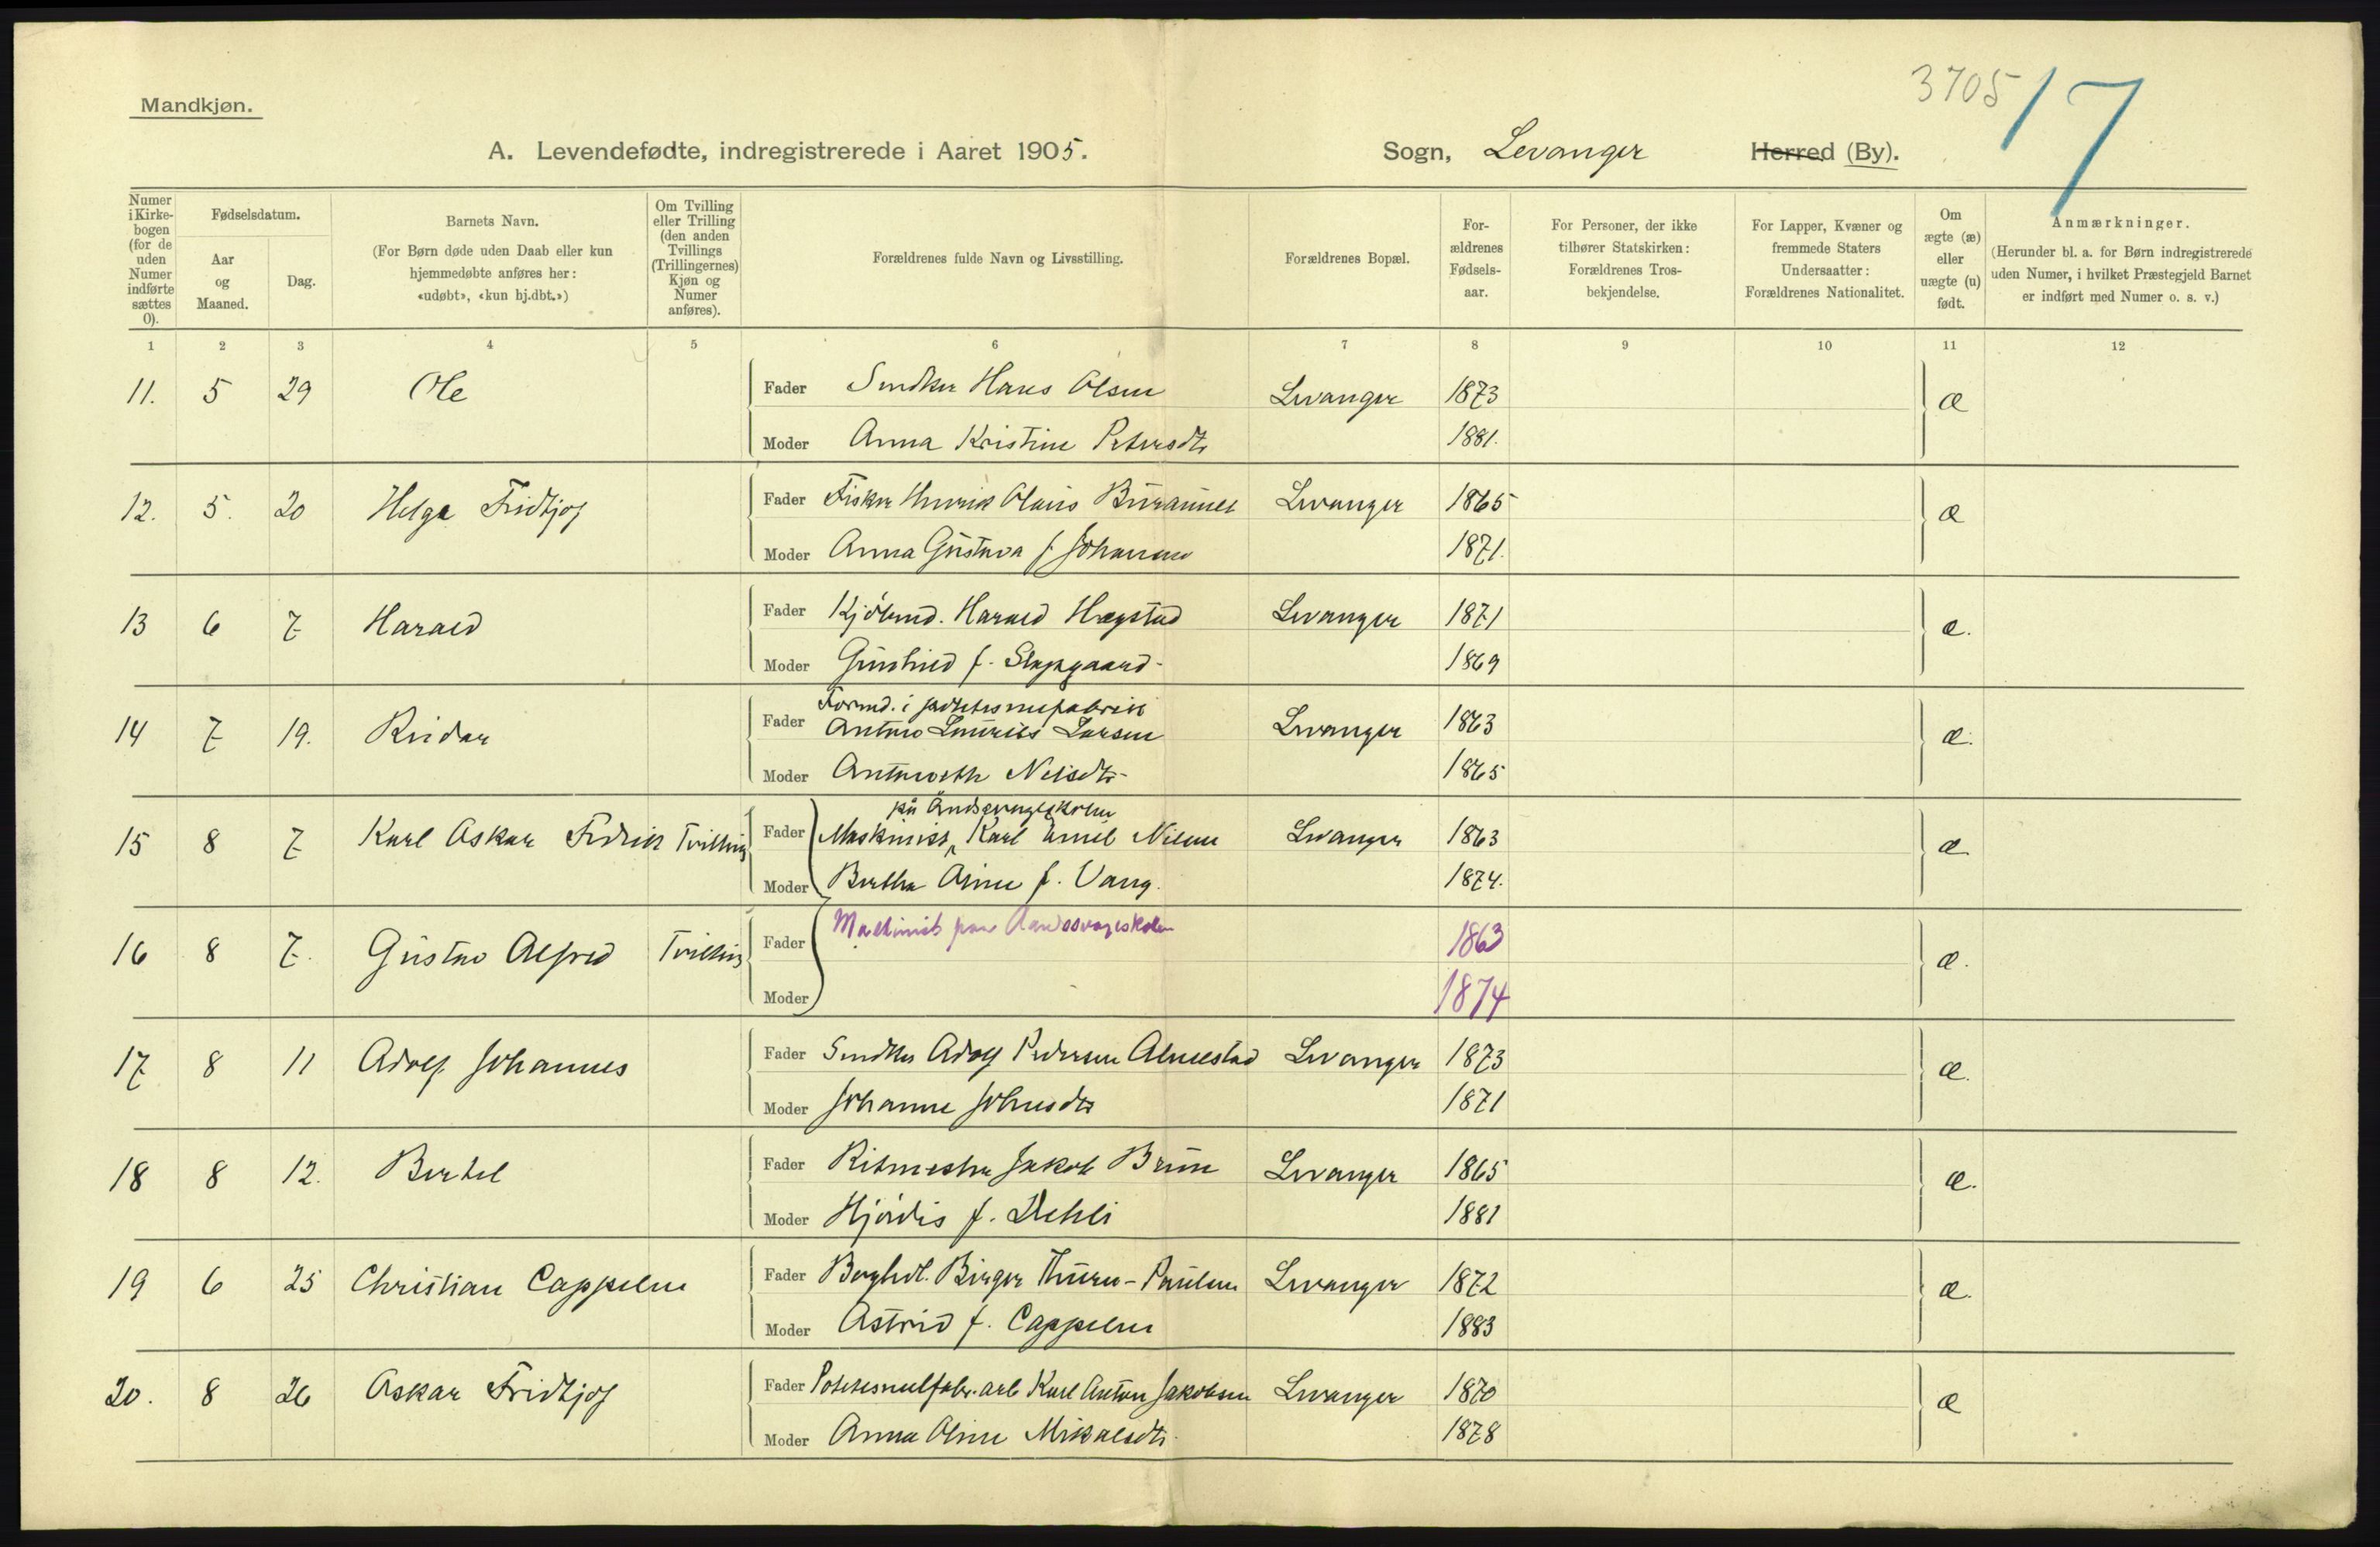 3705
17
Mandkjøn.
A. Levendefødte, indregistrerede i Aaret 1905.
Sogn, Levanger Herred (By).
Numer i Kirke-bogen (for de uden Numer indførte sættes 0).
Fødselsdatum.
Aar og Maaned.
Dag.
Barnets Navn.
(For Børn døde uden Daab eller kun hjemmedøbte anføres her: «udøbt», «kun hj.dbt.»)
Om Tvilling eller Trilling (den anden Tvillings (Trillingernes) Kjøn og Numer anføres).
Forældrenes fulde Navn og Livsstilling.
Forældrenes Bopæl.
For-ældrenes Fødsels-aar.
For Personer, der ikke tilhører Statskirken: Forældrenes Tros-bekjendelse.
For Lapper, Kvæner og fremmede Staters Undersaatter: Forældrenes Nationalitet.
Om ægte (æ) eller uægte (u) født.
Anmærkninger.
(Herunder bl. a. for Børn indregistrerede uden Numer, i hvilket Præstegjeld Barnet er indført med Numer o. s. v.)
1 2 3 4 5 6 7 8 9 10 11 12
11. 5 29 Ole Fader Snedker Hans Olsen Levanger 1873 æ
Moder Anna Kristine Petersdtr 1881.
12. 5. 20 Helge Fridtjof Fader Fisker Henrik Olaus Buraunet Levanger 1865 æ
Moder Anna Gustava f. Johansen 1871.
13 6 7 Harald Fader Kjøbmd. Harald Hægstad Levanger 1871 æ.
Moder Gunhild f. 1869
14 7 19. Reidar Fader Formd. i potetesmelfabrik
Anton Laurits Larsen Levanger 1863 æ.
Moder Nelsdtr 1865
15 8 7 Karl Oskar Fredrik Tvilling på Åndssvageskolen
Fader Maskinist Karl Emil Nilsen Levanger 1863 æ.
Moder Bertha Oline f. Vang. 1874.
16 8 7. Gustav Alfred Tvilling Fader Maskinist paa Aandssvageskolen 1863 æ.
Moder 1874
17 8 11 Adolf Johannes Fader Snedker Adolf Pedersen Almestad Levanger 1873 æ.
Moder Johanne Johnsdtr 1871
18 8 12. Bertel Fader Ritmester Jakob Brun Levanger 1865 æ.
Moder Hjørdis f. Dehli 1881
19 6 25 Christian Cappelen Fader Boghdl. Birger Thurn-Paulsen Levanger 1872 æ.
Moder Astrid f. Cappelen 1883
20. 8 26 Oskar Fridtjof Fader Potetesmelfabr. arb Karl Anton Jakobsen Levanger 1870 æ
Moder Anna Oline Mikalsdtr. 1878